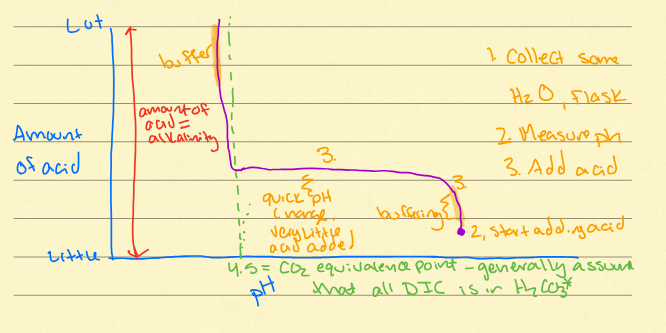 Lot
buffer
amount of
acid =
alkalinity
Amount
of acid
Little
3.
quick pH
change,
very little
acid added
3.
buffering
2, start adding acid
1. Collect some
H2O, flask
2. Measure ph
3. Add acid
4.5 = CO2 equivalence point - generally assume
that all DIC is in H2CO3*
pH